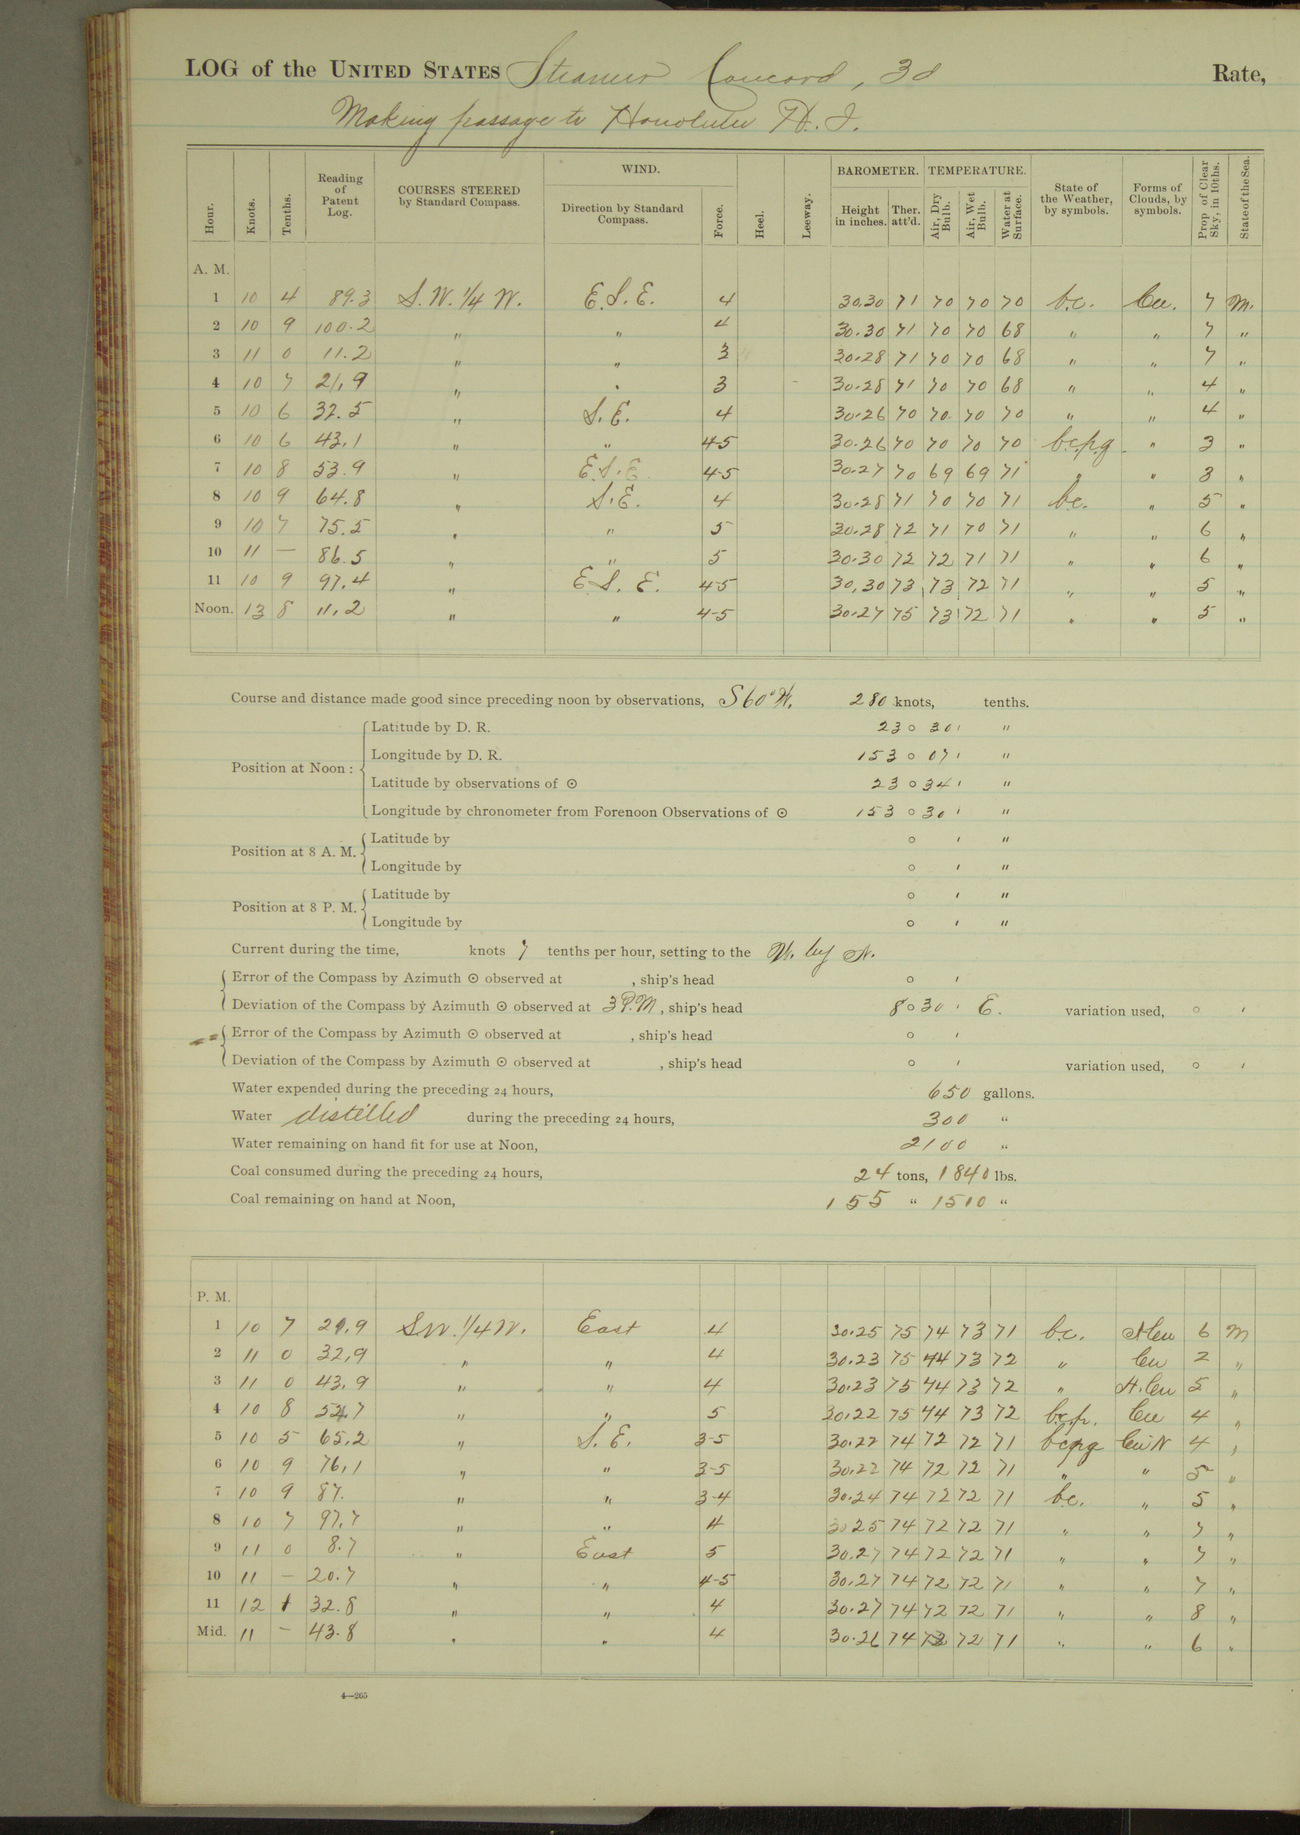 LOG of the UNITED STATES Steamer Concord, 3d Rate,
Making passage to Honolulu H. I.
Hour. Knots. Tenths. Reading of Patent Log. COURSES STEERED by Standard Compass. WIND. Direction by Standard Compass. Force. Heel. Leeway. BAROMETER. Height in inches. Ther. att'd. TEMPERATURE. Air, Dry Bulb. Air, Wet Bulb. Water at Surface. State of the Weather, by symbols. Forms of Clouds, by symbols. Prop. of Clear Sky, in 10ths. State of the Sea.
A. M.
1 10 4 89.3 S. W. 1/4 W. E. S. E. 4 30.30 71 70 70 70 b.c. Cu. 7 M.
2 10 9 100.2 " " 4 30.30 71 70 70 68 " " 7 "
3 11 0 11.2 " " 3 30.28 71 70 70 68 " " 7 "
4 10 7 21.9 " " 3 30.28 71 70 70 68 " " 4 "
5 10 6 32.5 " S. E. 4 30.26 70 70 70 70 " " 4 "
6 10 6 43.1 " " 4-5 30.26 70 70 70 70 b.c.p.g. " 3 "
7 10 8 53.9 " E. S. E. 4-5 30.27 70 69 69 71 " " 3 "
8 10 9 64.8 " S. E. 4 30.28 71 70 70 71 b.c. " 5 "
9 10 7 75.5 " " 5 30.28 72 71 70 71 " " 6 "
10 11 — 86.5 " " 5 30.30 72 72 71 71 " " 6 "
11 10 9 97.4 " E. S. E. 4-5 30.30 73 73 72 71 " " 5 "
Noon. 13 8 11.2 " " 4-5 30.27 75 73 72 71 " " 5 "
Course and distance made good since preceding noon by observations, S 60° W. 280 knots, tenths.
Position at Noon:
Latitude by D. R. 23 ° 30 ' "
Longitude by D. R. 153 ° 07 ' "
Latitude by observations of ☉ 23 ° 34 ' "
Longitude by chronometer from Forenoon Observations of ☉ 153 ° 30 ' "
Position at 8 A. M.
Latitude by ° ' "
Longitude by ° ' "
Position at 8 P. M.
Latitude by ° ' "
Longitude by ° ' "
Current during the time, knots 7 tenths per hour, setting to the W. by N.
Error of the Compass by Azimuth ☉ observed at , ship's head ° '
Deviation of the Compass by Azimuth ☉ observed at 3 P.M, ship's head 8 ° 30 ' E. variation used, ° '
Error of the Compass by Azimuth ☉ observed at , ship's head ° '
Deviation of the Compass by Azimuth ☉ observed at , ship's head ° ' variation used, ° '
Water expended during the preceding 24 hours, 650 gallons.
Water distilled during the preceding 24 hours, 300 "
Water remaining on hand fit for use at Noon, 2100 "
Coal consumed during the preceding 24 hours, 24 tons, 1840 lbs.
Coal remaining on hand at Noon, 155 " 1510 "
P. M.
1 10 7 21.9 SW. 1/4 W. East 4 30.25 75 74 73 71 b.c. 6 M
2 11 0 32.9 " " 4 30.23 75 74 73 72 " Cu 2 "
3 11 0 43.9 " " 4 30.23 75 74 73 72 " 5 "
4 10 8 54.7 " " 5 30.22 75 74 73 72 b.c.p. Cu 4 "
5 10 5 65.2 " S. E. 3-5 30.22 74 72 72 71 bcpg Cu N 4 "
6 10 9 76.1 " " 3-5 30.22 74 72 72 71 " " 5 "
7 10 9 87. " " 3-4 30.24 74 72 72 71 b.c. " 5 "
8 10 7 97.7 " " 4 30 25 74 72 72 71 " " 7 "
9 11 0 8.7 " East 5 30.27 74 72 72 71 " " 7 "
10 11 — 20.7 " " 4-5 30.27 74 72 72 71 " " 7 "
11 12 1 32.8 " " 4 30.27 74 72 72 71 " " 8 "
Mid. 11 — 43.8 " " 4 30.26 74 73 72 71 " " 6 "
4—265